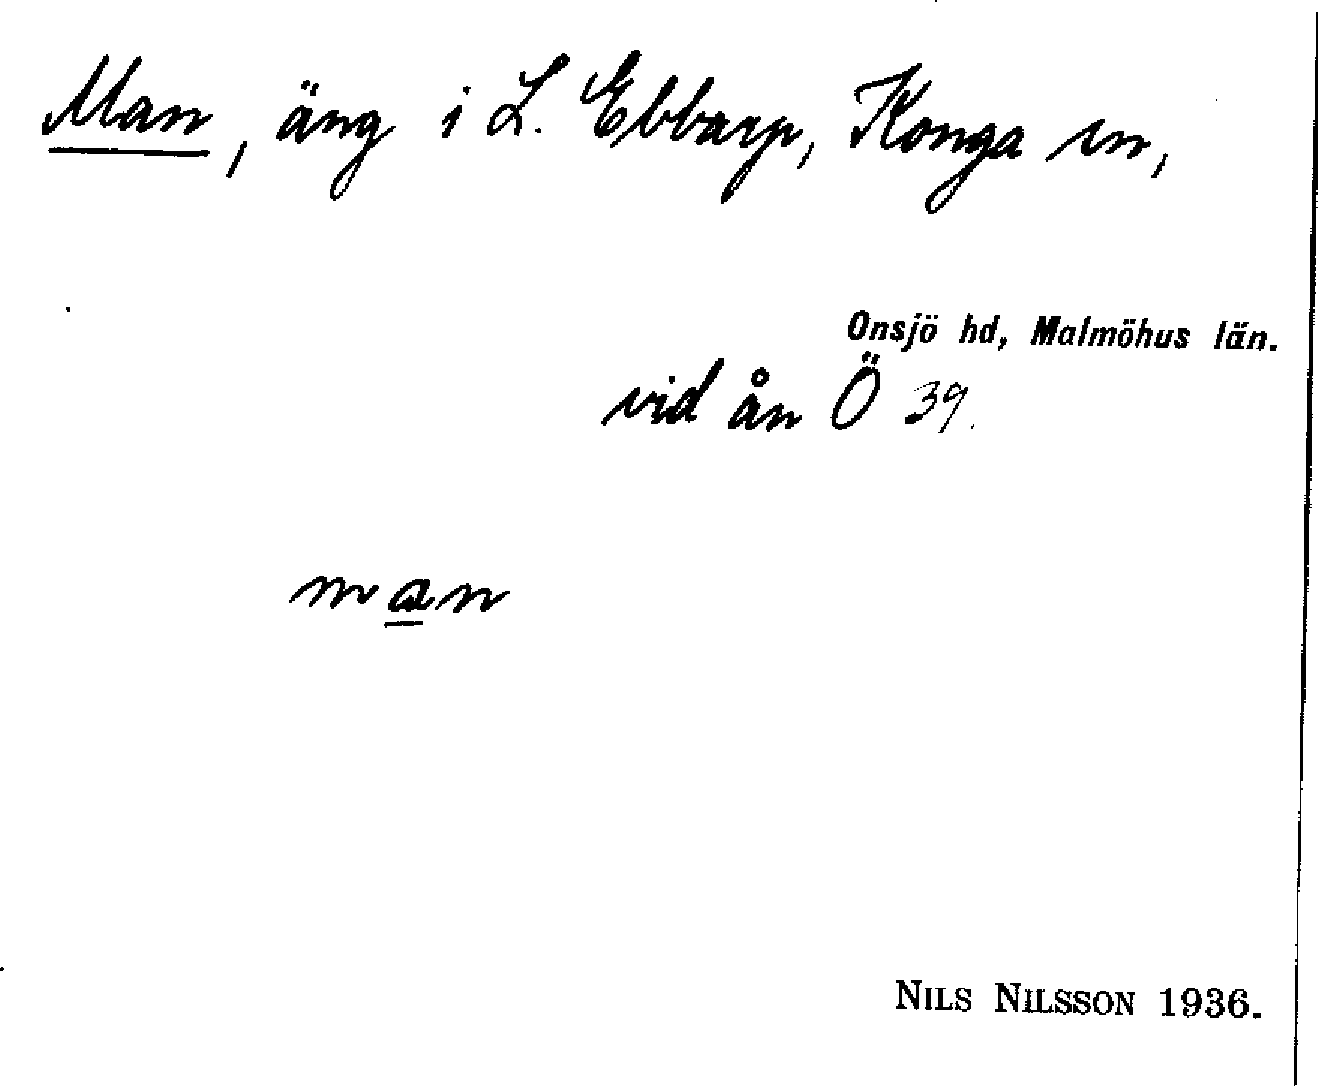 Man, äng i L. Ebbarp, Konga sn,
Onsjö hd, Malmöhus län.
vid ån Ö 39.
man
NILS NILSSON 1936.